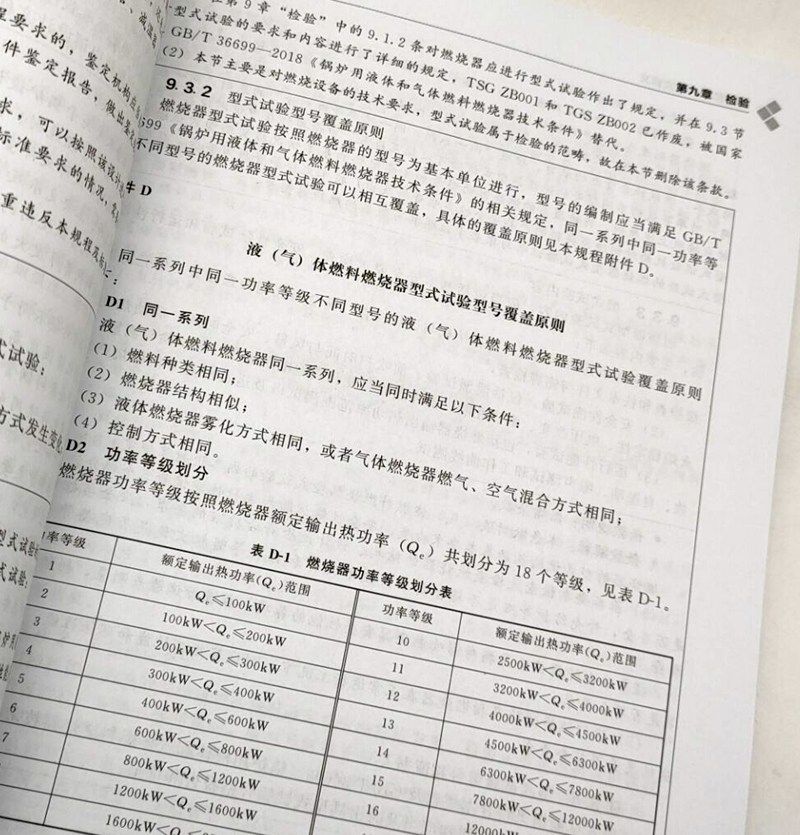 程要求的，鉴定机构应
件鉴定报告，做出
求，可以按照该设计
标准要求的情况，
重违反本规程及
式试验；
方式发生变化
型式试验
式试验
第九章 检验
第9章“检验”中的9.1.2条对燃烧器应进行型式试验作出了规定，并在9.3节
型式试验的要求和内容进行了详细的规定，TSG ZB001和TGS ZB002已作废，被国家
GB/T 36699—2018《锅炉用液体和气体燃料燃烧器技术条件》替代。
（2）本节主要是对燃烧设备的技术要求，型式试验属于检验的范畴，故在本节删除该条款。
9.3.2 型式试验型号覆盖原则
燃烧器型式试验按照燃烧器的型号为基本单位进行，型号的编制应当满足GB/T
699《锅炉用液体和气体燃料燃烧器技术条件》的相关规定，同一系列中同一功率等
不同型号的燃烧器型式试验可以相互覆盖，具体的覆盖原则见本规程附件D。
件D
液（气）体燃料燃烧器型式试验型号覆盖原则
同一系列中同一功率等级不同型号的液（气）体燃料燃烧器型式试验覆盖原则
：
D1 同一系列
液（气）体燃料燃烧器同一系列，应当同时满足以下条件：
（1）燃料种类相同；
（2）燃烧器结构相似；
（3）液体燃烧器雾化方式相同，或者气体燃烧器燃气、空气混合方式相同；
（4）控制方式相同。
D2 功率等级划分
燃烧器功率等级按照燃烧器额定输出热功率（Qe）共划分为18个等级，见表D-1。
表D-1 燃烧器功率等级划分表
率等级 额定输出热功率(Qe)范围 功率等级 额定输出热功率(Qe)范围
1 Qe≤100kW 10 2500kW<Qe≤3200kW
2 100kW<Qe≤200kW 11 3200kW<Qe≤4000kW
3 200kW<Qe≤300kW 12 4000kW<Qe≤4500kW
4 300kW<Qe≤400kW 13 4500kW<Qe≤6300kW
5 400kW<Qe≤600kW 14 6300kW<Qe≤7800kW
6 600kW<Qe≤800kW 15 7800kW<Qe≤12000kW
7 800kW<Qe≤1200kW 16 12000kW
1200kW<Qe≤1600kW
1600kW<Qe